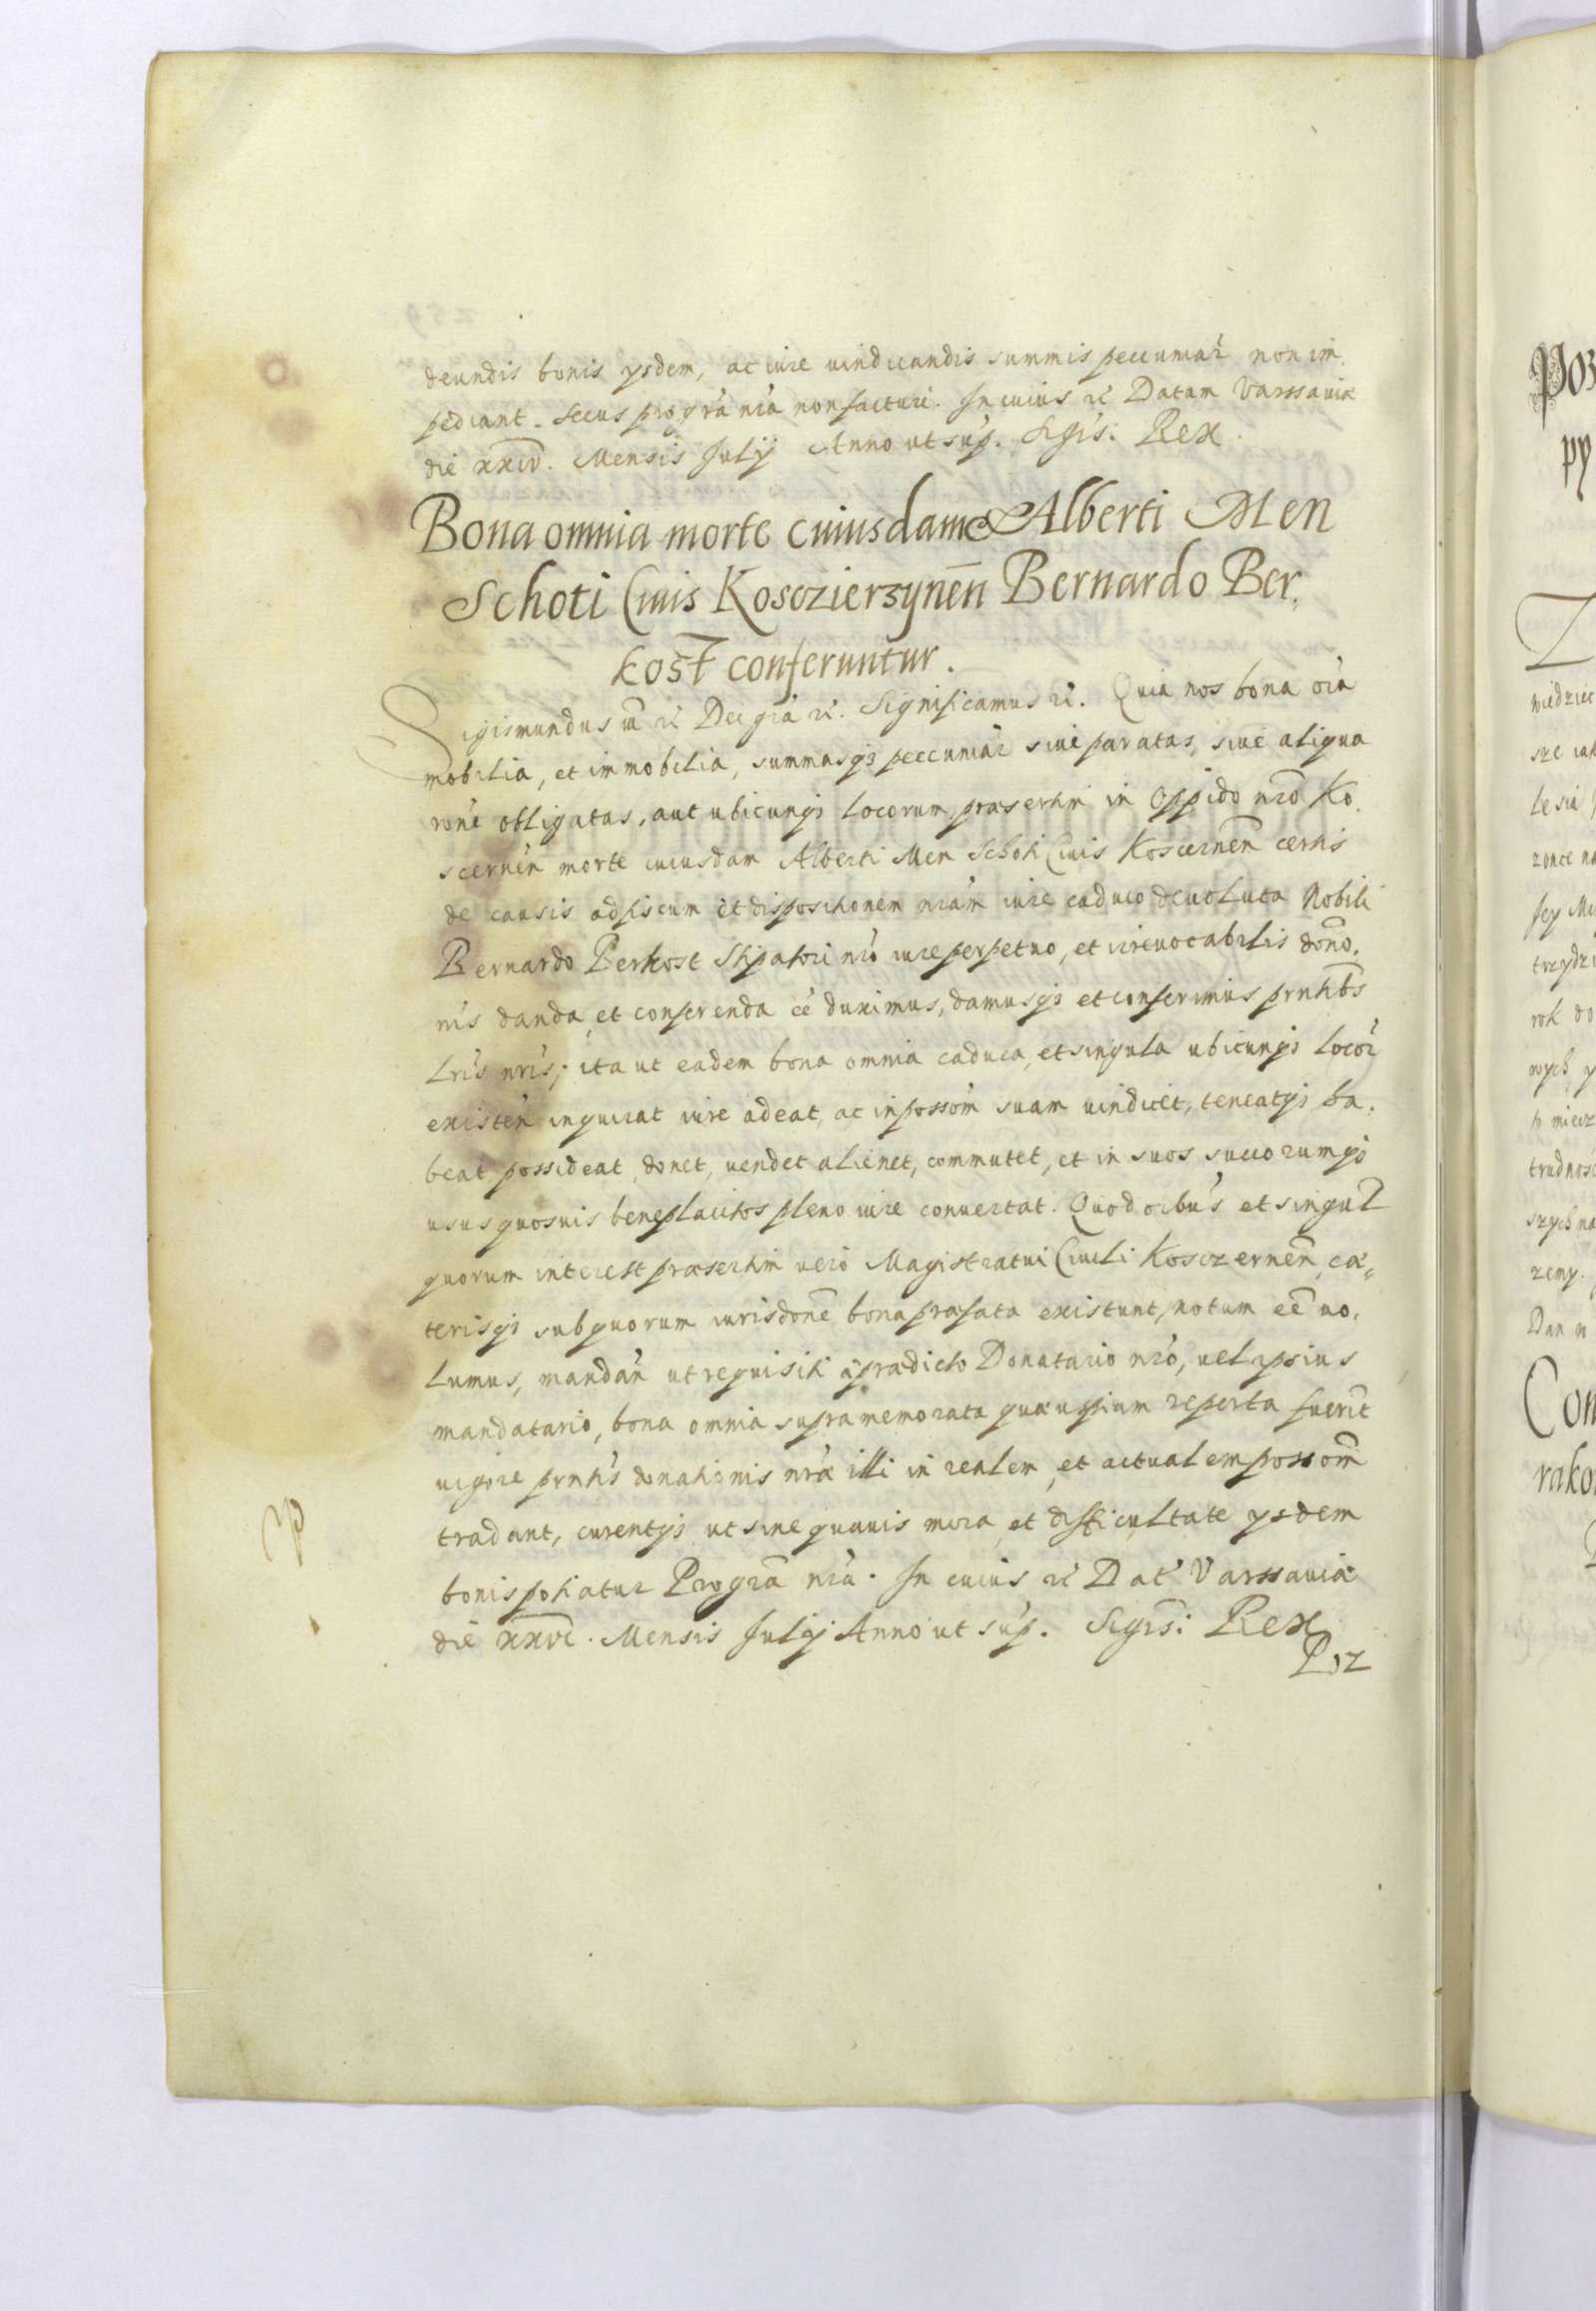 deundis bonis ysdem, ac iure uindicandis summis pecuniar̃ non im
pediant. secus pro gr̃a nr̃a non facturi. In cuius rẽ Datam Varssauiæ
die xxiv. Mensis Julÿ Anno ut sup̃. Sigis̃: Rex.
Bona omnia morte cuiusdam Alberti Men
Schoti Ciuis Kosczierzynen̄ Bernardo Ber.
kost conferuntur.
Sigismundus iii rẽ Dei gr̃a rẽ. Significamus rẽ. Quia nos bona oĩa
mobilia, et immobilia, summasqȝ peccuniar̃ siue paratas, siue aliqua
rõne obligatas, aut ubicunqȝ locorum præsertim in oppido nr̃o Ko.
scernen̄ morte cuiusdam Alberti Men Schoti Ciuis Koscernen̄ certis
de causis ad fiscum et dispositionem nr̃am iure caduco deuoluta Nobili
Bernardo Berkost Stipatori nr̃o iure perpetuo, et irreuocabilis dõno.
nis danda et conferenda cẽ duximus, damusqȝ et conferimus prntib̃s
Lr̃is nr̃is; ita ut eadem bona omnia caduca, et singula ubicunqȝ locor̃
existen̄ inquirat iure adeat, ac in possõm suam uindicet, teneatqȝ ha.
beat possideat, donet, uendet alienet, commutet, et in suos suorumqȝ
usus quosuis beneplacitos pleno iure conuertat. Quod oĩbus et singul̃
quorum interest præsertim uero Magistratui Ciuili Kosczernen̄, cæ„
terisqȝ sub quorum iurisdõne bona præfata existunt, notum eẽ uo.
lumus, mandan̄ ut requisiti à prædicto Donatario nr̃o, uel ipsius
mandatario, bona omnia supramemorata quæuspiam reperta fuerit
uigore prntis̃ donationis nr̃æ illi in realem et actualem possõm
tradant, curentqȝ ut sine quauis mora et difficultate ysdem
bonis potiatur Pro gr̃a nr̃a. In cuius rẽ Dat̃ Varssauiæ
die xxvi. Mensis Julÿ Anno ut sup̃. Sigis̃: Rex
Poz